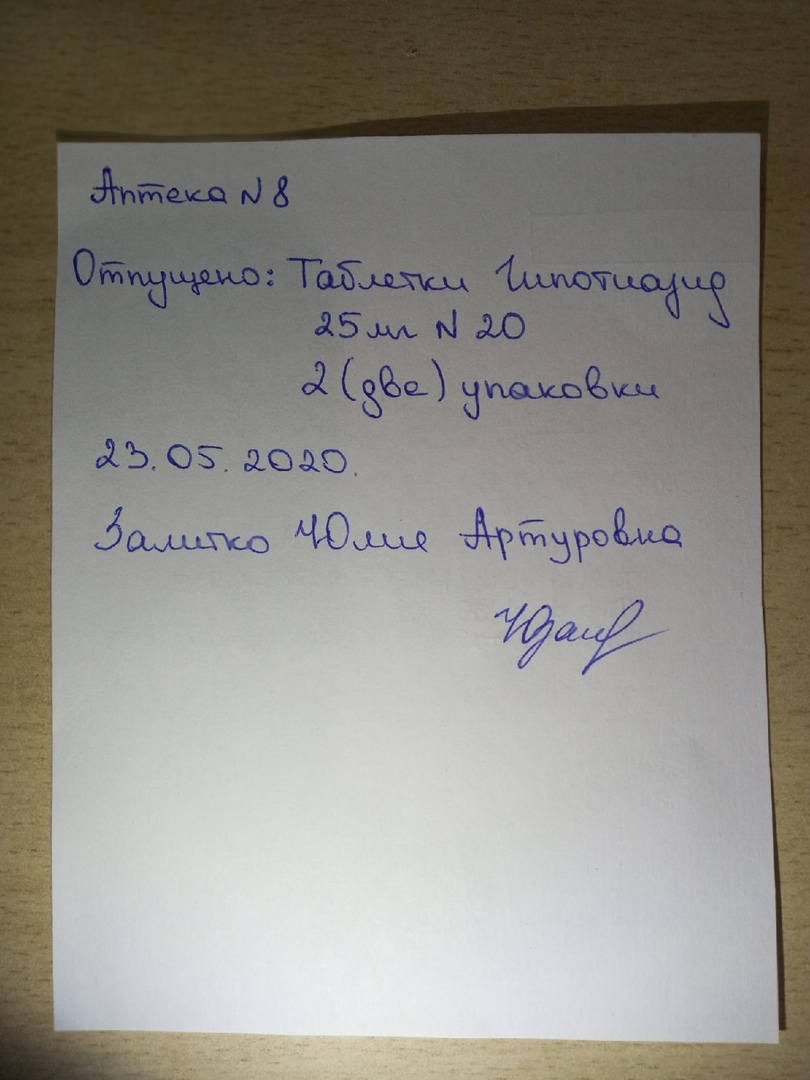 Аптека N 8
Отпущено: Таблетки Гипотиазид
25 мг N 20
2 (две) упаковки
23.05.2020.
Юлия Артуровна